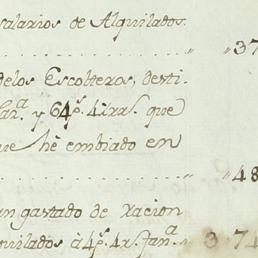 salarios de Alquilados.
. . . . . . . . . . . . . . . . " 37
delos Escolteros, desti-
y 64p.s 4 rra.s que
que hé embiado en
. . . . . . . . . . . . . . . . " 48
an gastado de Racion
quilados à 4p.s 4r.s fan.a 3 74